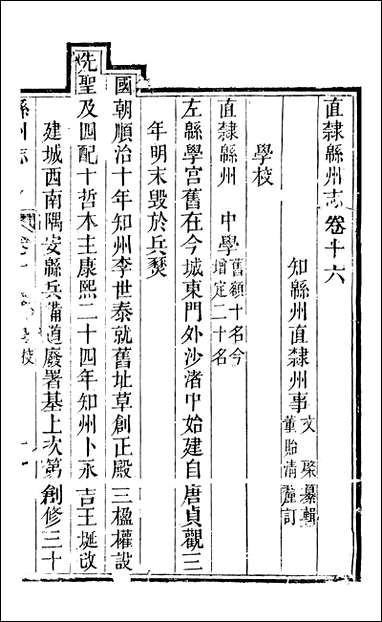 直隸緜州志卷十六
知緜州直隸州事文棨纂輯
董貽清釐訂
學校
直隸緜州 中學舊額十名今
增定二十名
左緜學宮舊在今城東門外沙渚中始建自唐貞觀三
年明末毀於兵燹
國朝順治十年知州李世泰就舊址草創正殿三楹權設
先聖及四配十哲木主康熙二十四年知州卜永吉王埏改
建城西南隅安緜兵備道廢署基上次第創修三十